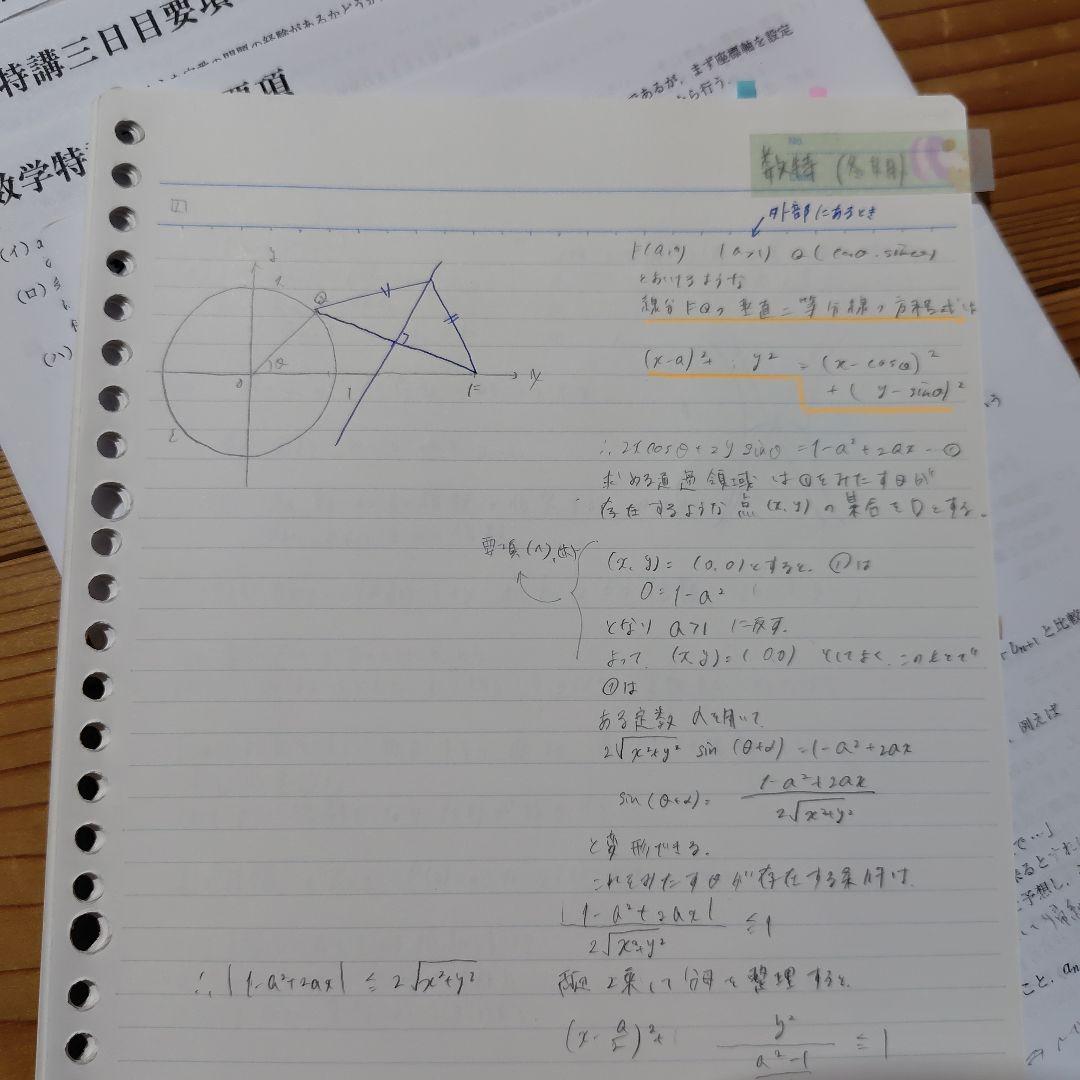 特講三日目要項
要項
数学特
であるが、まず座標軸を設定
から行う.
(イ)
(ロ)
(ハ)
No.
数特
外部にあるとき
F(a,0) (a>1) Q(cosθ, sinθ)
とおけるような
線分FQの垂直二等分線の方程式は
(x-a)²+ y² = (x-cosθ)²
+(y-sinθ)²
y
1
Q
θ
0
1
F
x
∴2xcosθ+2ysinθ=1-a²+2ax-①
求める通過領域は①をみたすθが
存在するような点(x,y)の集合をDとする.
要項(ハ)
(x,y)=(0,0)とすると、①は
0=1-a²
となり a>1 に反す.
よって (x,y)=(0,0) としてよく、このもとで
①は
ある定数 αを用いて
2√x²+y² sin(θ+α)=1-a²+2ax
sin(θ+α)= 1-a²+2ax / 2√x²+y²
と変形できる.
これをみたすθが存在する条件は.
|1-a²+2ax| / 2√x²+y² ≦1
∴|1-a²+2ax| ≦ 2√x²+y²
両辺2乗して分母を整理すると.
(x-a/2)²+ y²/a²-1 ≦1
aₙ₊₁と比較
例えば
で…」
予想し、
こと.